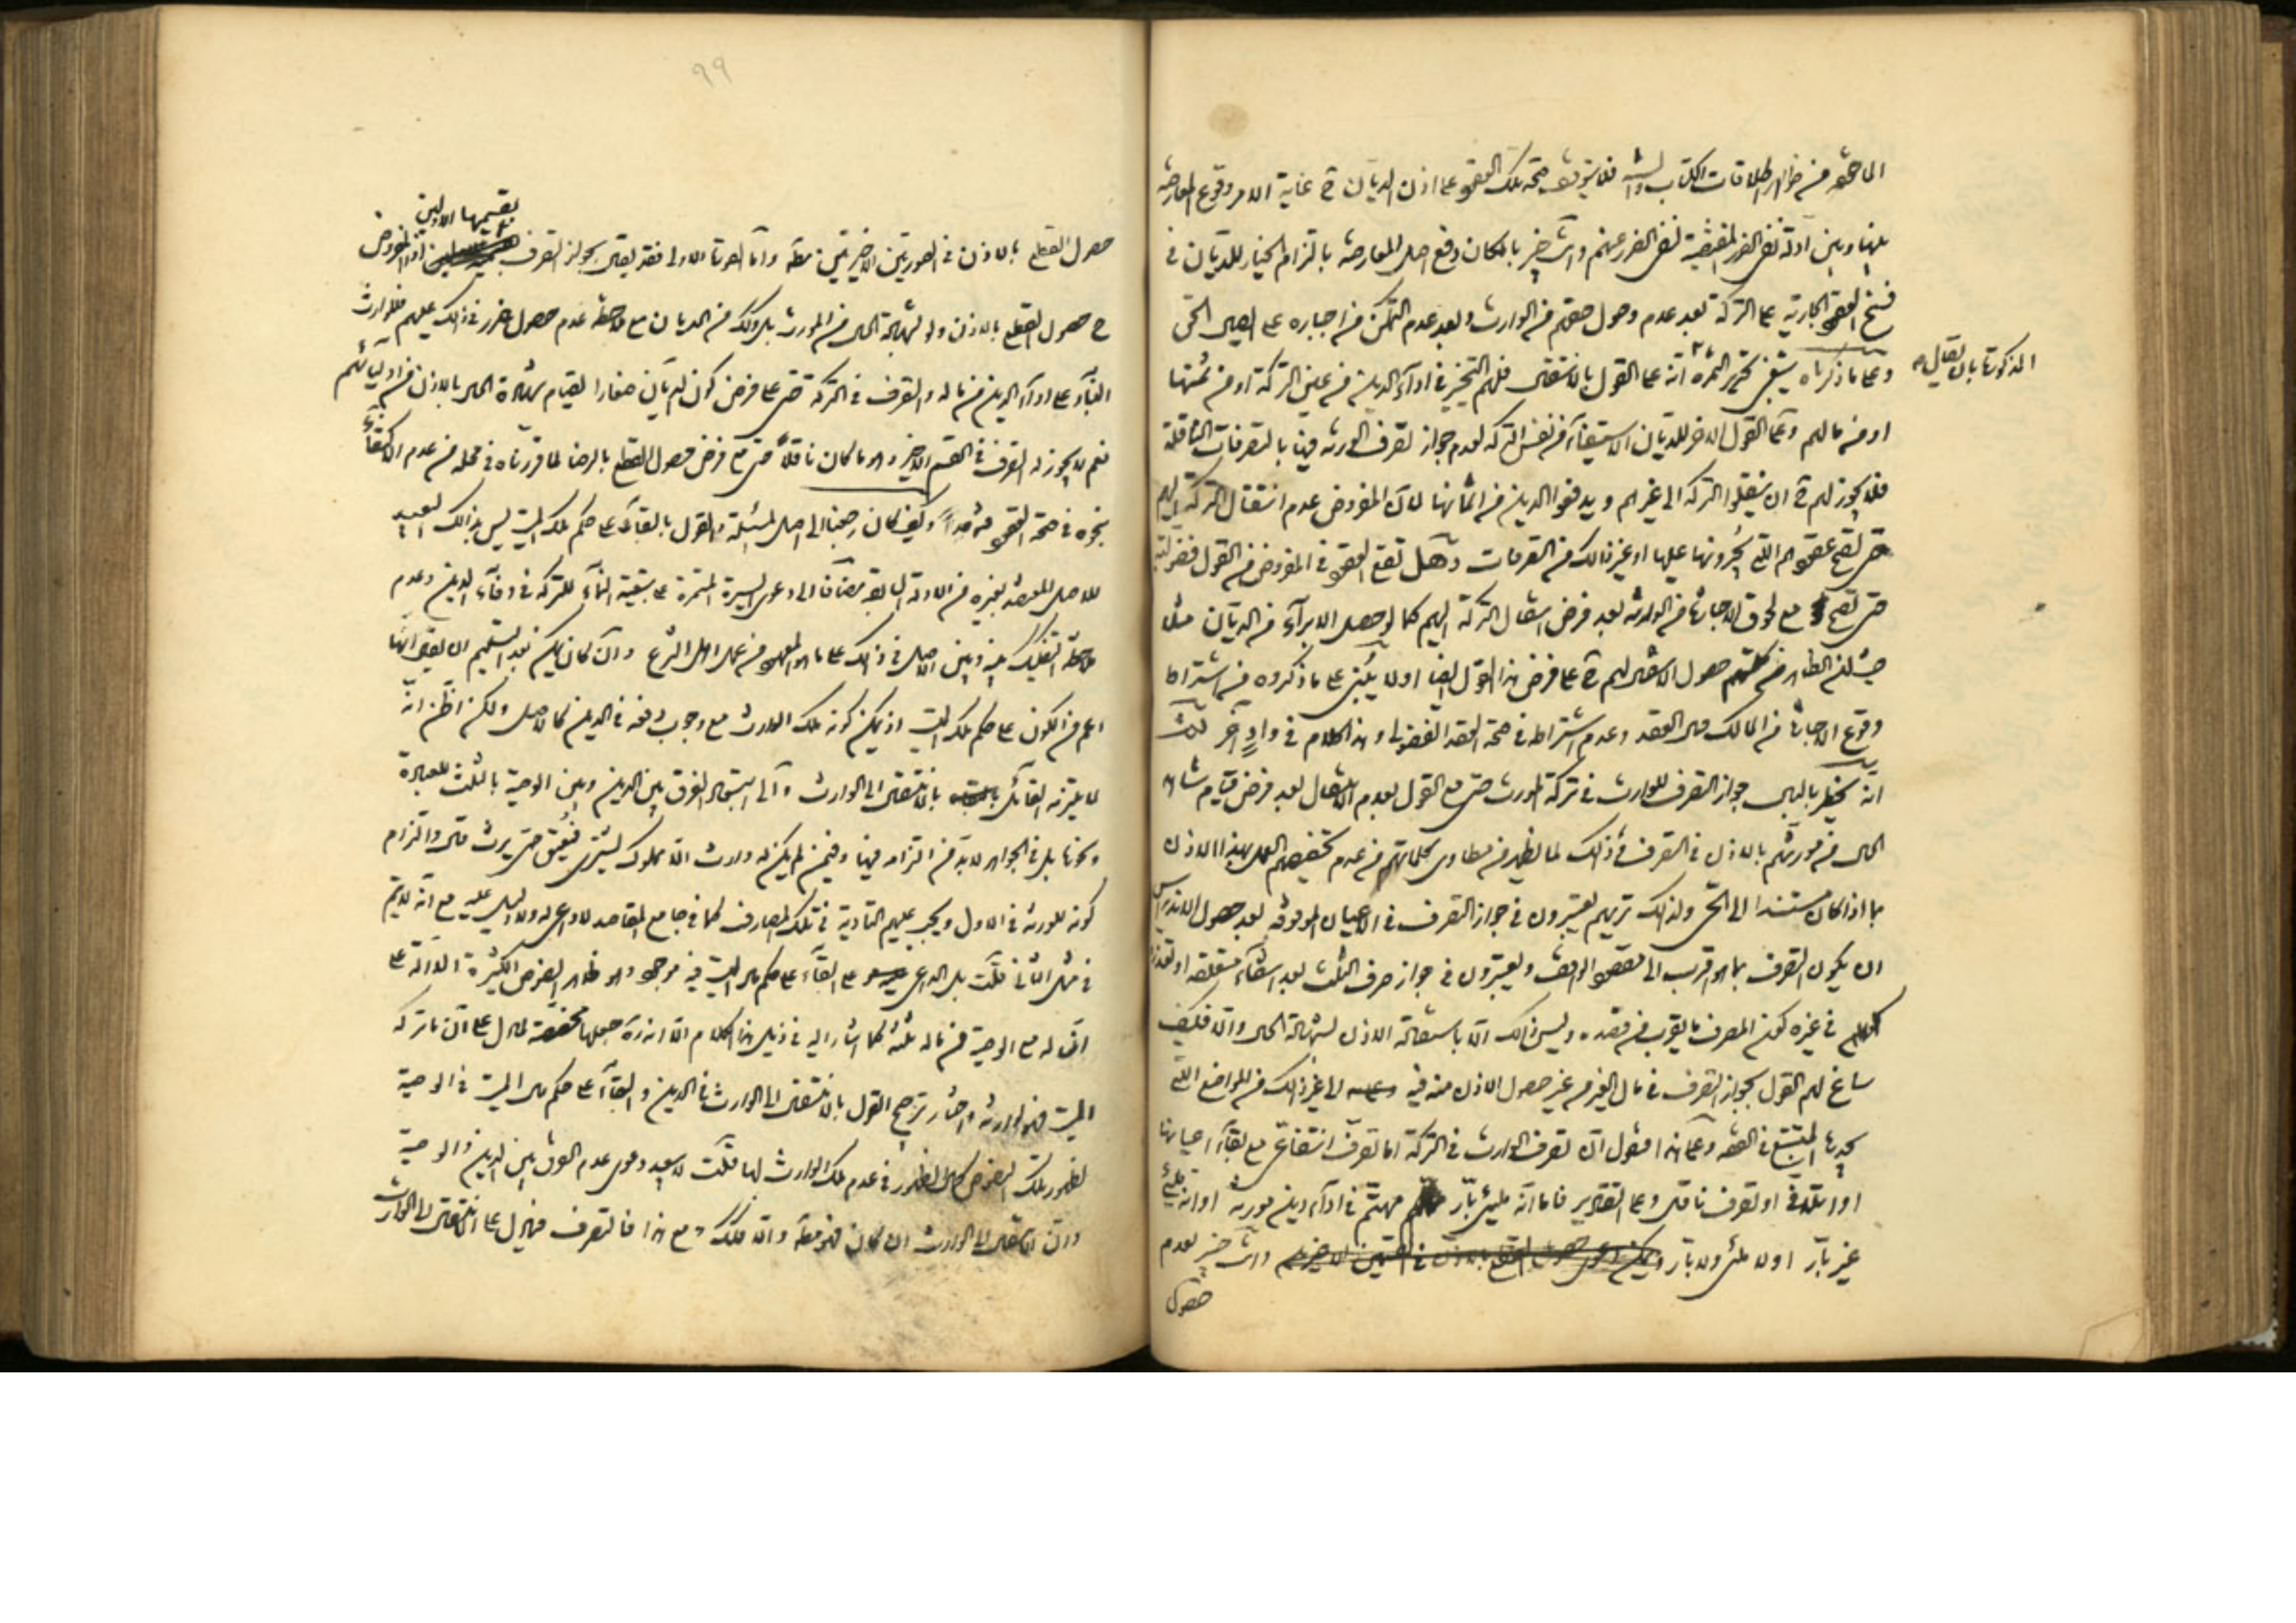 فلا يتوقف صحة تلك العقود على اذن الديان ح غاية الامر وقوع المعارضة
بينها وبين ادلة نفى الضرر المقتضية لنفى الضرر عنهم وانت خبير بامكان دفع اصل المعارضة بالتزام الخيار للديان فى
فسخ العقود الجارية على التركة بعد عدم وصول حقهم من الوارث وبعد عدم التمكن من اجباره على ايصال الحق
المذكورة بان يقال
وعلى ما ذكرناه ينبغى تحرير الثمرة انه على القول بالانتقال فلهم التخيير فى اداء الدين من عين التركة او من ثمنها
او من مالهم وعلى القول الاخر للديان الاستيفاء من نفس التركة لعدم جواز تصرف الورثة فيها بالتصرفات الناقلة
فلا يجوز لهم ح ان ينقلوا التركة الى غيرهم ويدفعوا الدين من اثمانها لان المفروض عدم انتقال التركة اليهم
حتى تصح عقودهم التى يجرونها عليها او غير ذلك من التصرفات وهل تقع العقود فى المفروض من القول فضولية
حتى تصح مع لحوق الاجازة من الورثة بعد فرض انتقال التركة اليهم كما لو حصل الابراء من الديان مثلا
حصول الانتقال لهم ح على فرض هذا القول ايضا او لا يبتنى على ما ذكروه من اشتراط
وقوع الاجازة من المالك حال العقد وعدم اشتراطه فى صحة العقد الفضولى وهذا الكلام فى واد آخر
انه يخطر بالبال جواز التصرف للوارث فى تركة المورث حتى مع القول بعدم الانتقال بعد فرض قيام شاهد
الحال من مورثهم بالاذن فى التصرف فى ذلك لما يظهر من مطاوى كلماتهم من عدم تخصيصهم العمل بهذا الاذن
بما اذا كان مستندا الى الحى ولذلك تريهم يعتبرون فى جواز التصرف فى الاعيان الموقوفة بعد حصول الاندراس
ان يكون التصرف بما هو اقرب الى مقصود الواقف ويعتبرون فى جواز صرف الثلث بعد انتفاء متعلقه او تعذره
فى غيره كون المصرف ما يقرب من قصده وليس ذلك الا باستفادة الاذن لشهادة الحال والا فكيف
ساغ لهم القول بجواز التصرف فى مال الغير من غير حصول الاذن منه فيه الى غير ذلك من المواضع التى
يجدها المتتبع فى الفقه وعلى هذا فنقول ان تصرف الوارث فى التركة اما تصرف انتفاعى مع بقاء اعيانها
او اتلافى او تصرف ناقل وعلى التقادير فاما انه ملىء بار مهتم فى اداء دين مورثه او انه ملىء
غير بار او لا ملىء ولا بار ويمكن دعوى حصول القطع بالاذن فى القسمين الاخيرين وانت خبير بعدم
حصول
٩٩
حصول القطع بالاذن فى الصورتين الاخيرتين مطلقا واما الصورة الاولى فقد يقال بجواز التصرف بقسيمها الاولين اذ المفروض
ح حصول القطع بالاذن ولو لشهادة الحال من المورث بل وكذلك من الديان مع ملاحظة عدم حصول ضرر فى ذلك عليهم فللوارث
البناء على اداء الدين من ماله والتصرف فى التركة حتى على فرض كون الديان صغارا لقيام شهادة الحال بالاذن من اوليائهم
نعم لا يجوز له التصرف فى القسم الاخير وهو ما كان ناقلا حتى مع فرض حصول القطع بالرضا لما قررناه فى محله من عدم الاكتفاء
بنحوه فى صحة العقود وكيف كان رجعنا الى اصل المسئلة والقول بالبقاء على حكم ملك الميت ليس بذلك البعيد
للاصل المعتضد بغيره من الادلة السابقة مضافا الى دعوى السيرة المستمرة على تبعية النماء للتركة فى وفاء الدين وعدم
ملاحظة التفكيك بينه وبين الاصل فى ذلك على ما هو المعهود من عمل اهل الشرع وان كان يمكن بعد التسليم ان يقع انها
اعم من الكون على حكم ملك الميت اذ يمكن كونه ملك الوارث مع وجوب دفعه فى الدين كالاصل ولكن اظن انه
لا يلتزمه القائل بالانتقال الى الوارث والى استبعاد الفرق بين الدين وبين الوصية بالثلث للعبادة
ونحوها بل فى الجواهر لا بد من التزامه فيها وفيمن لم يكن له وارث الا مملوك ليشترى فيعتق حتى يرث قال والتزام
كونه للورثة فى الاول ويجب عليهم التأدية فى تلك المصارف كما فى جامع المقاصد لا داعى له ولا دليل عليه مع انه لا يتم
فى مثل الثانى قلت بل الداعى على البقاء على حكم مال الميت فيه موجود وهو ظاهر النصوص الكثيرة الدالة على
ان له مع الوصية من ماله ثلثه كما اشار اليه فى ذيل هذا الكلام الا انه ره جعلها مخصصة لما دل على ان ما تركه
الميت فهو لوارثه واختار ترجيح القول بالانتقال الى الوارث فى الدين والبقاء على حكم مال الميت فى الوصية
لظهور تلك النصوص كمال الظهور فى عدم ملك الوارث لها قلت لا يبعد دعوى عدم الفرق بين الدين والوصية
وان الانتقال الى الوارث ان كان فهو مطلقا والا فلا ومع هذا فالتصرف فيه على انتقال الى الوارث